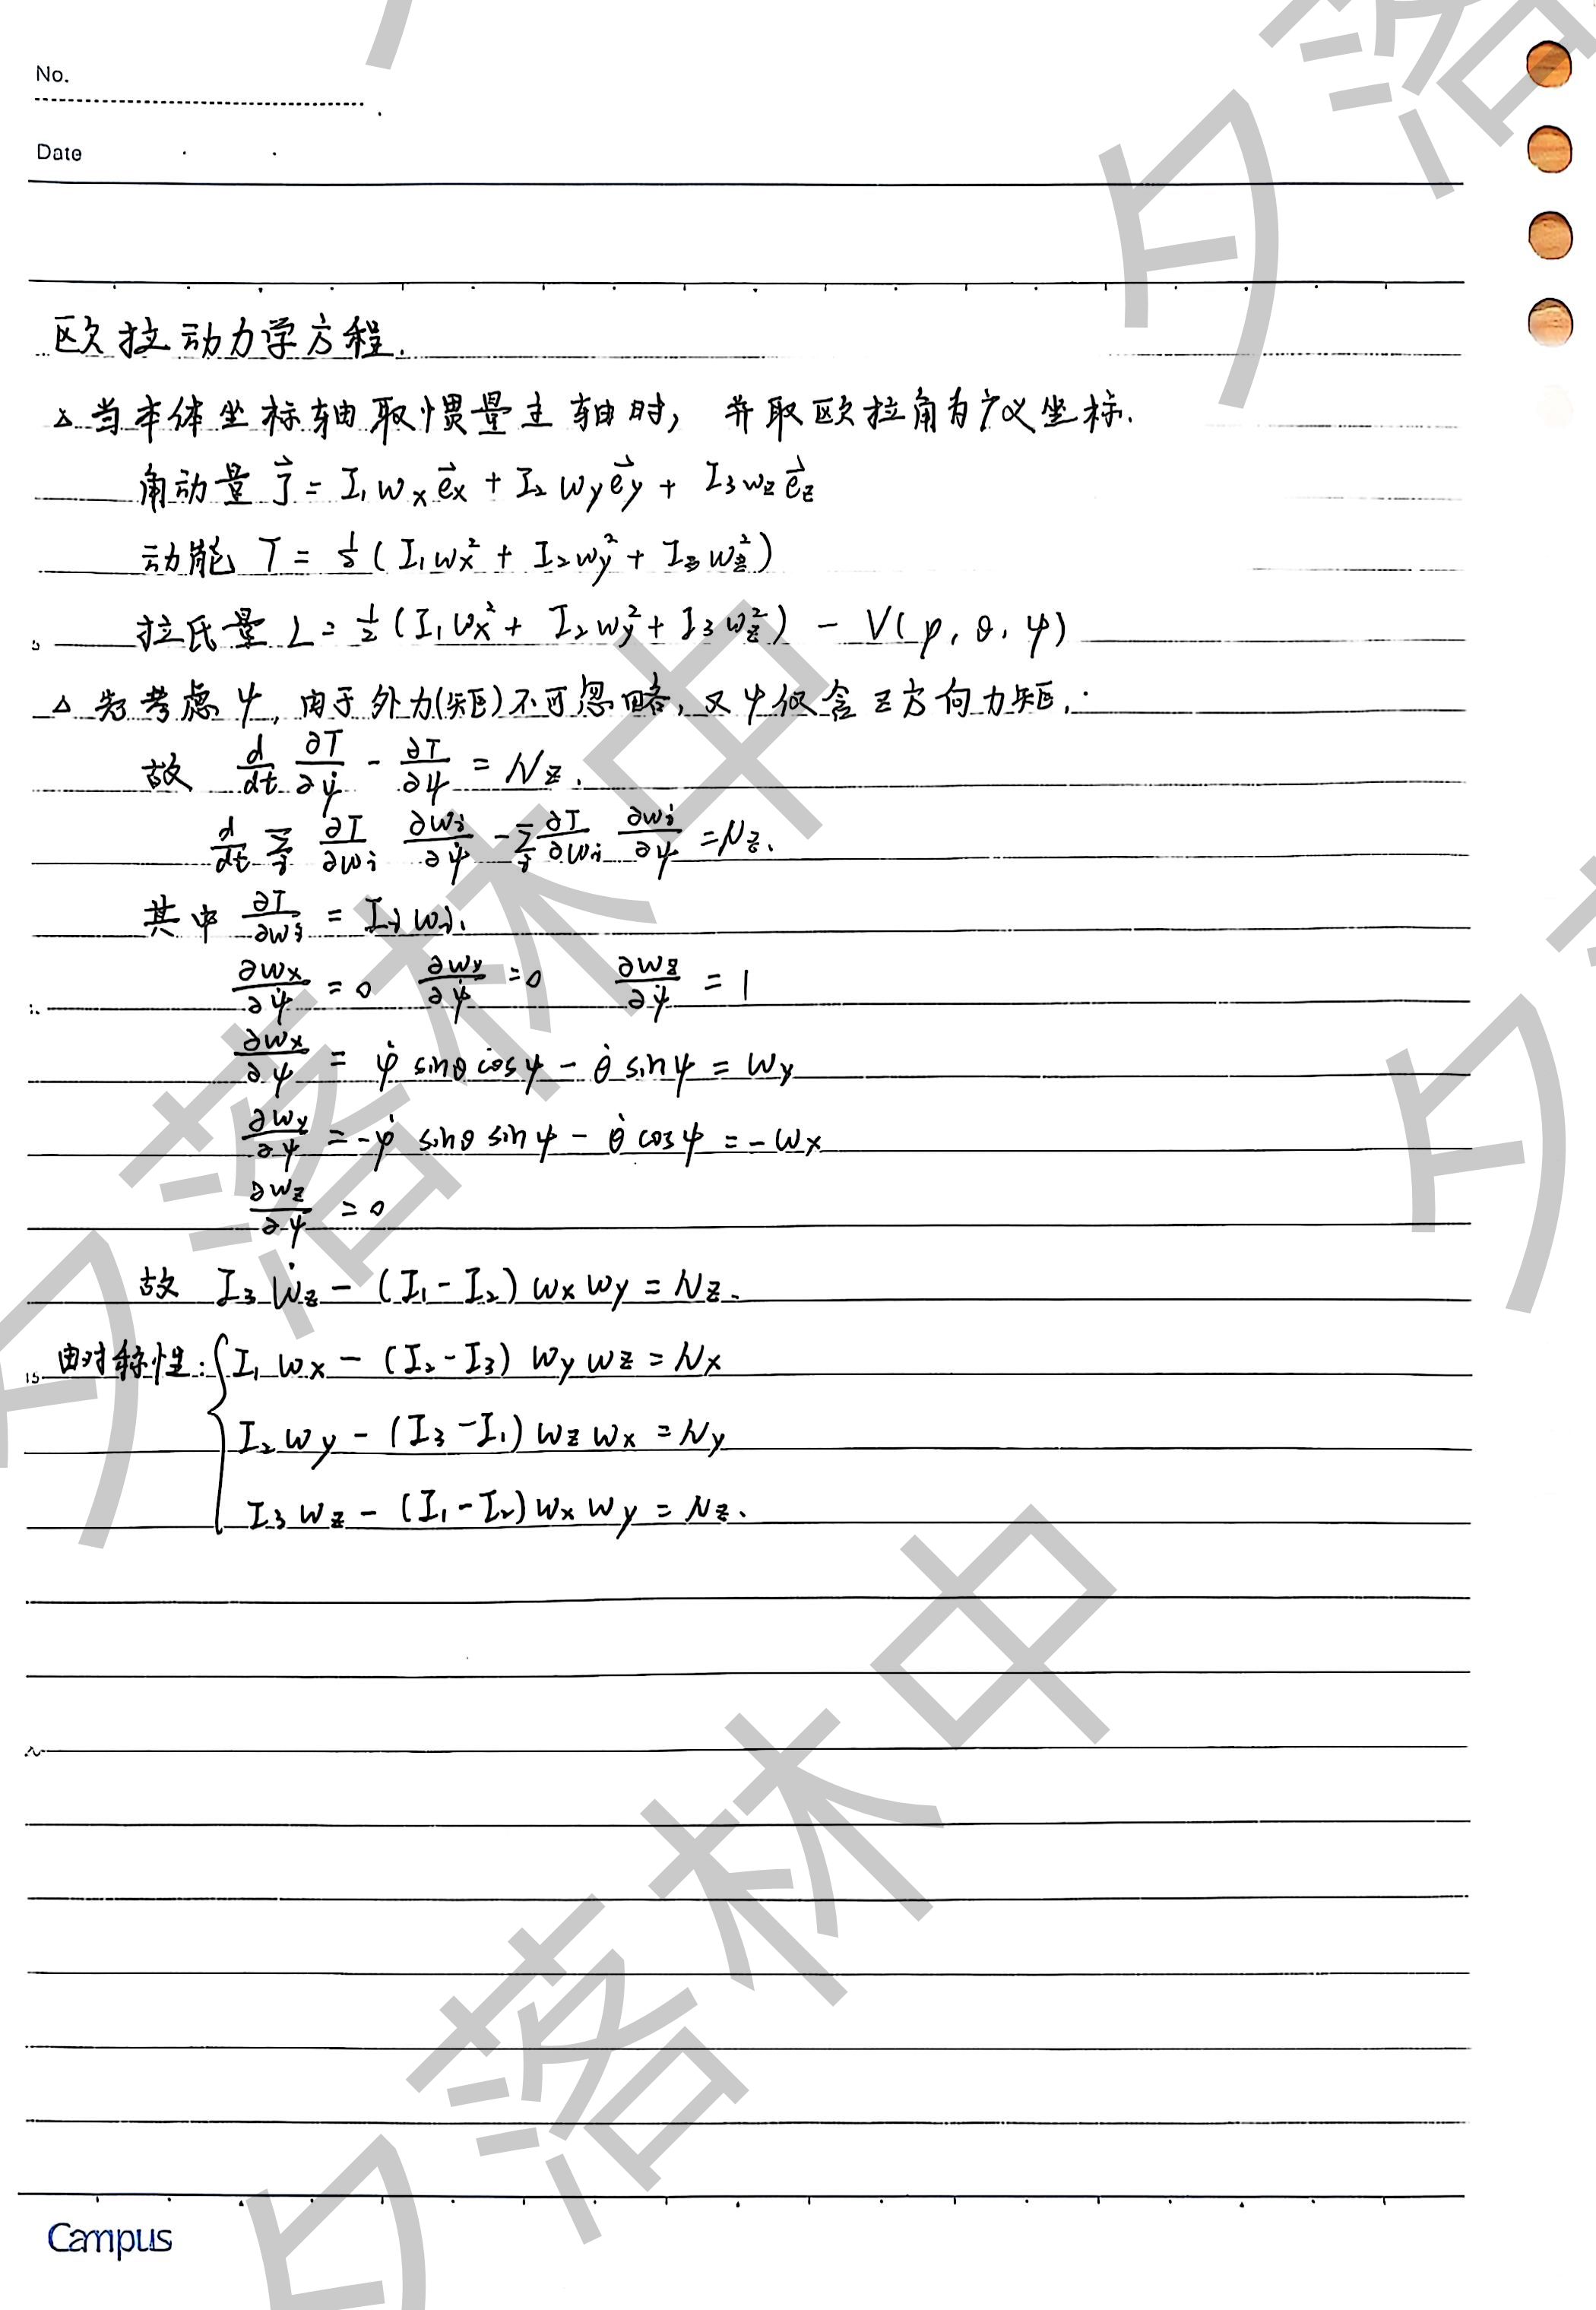 No.
Date
欧拉动力学方程.
△当本体坐标轴取惯量主轴时, 并取欧拉角为广义坐标.
角动量 $\vec{J} = I_1 ω_x \vec{e}_x + I_2 ω_y \vec{e}_y + I_3 ω_z \vec{e}_z$
动能 $T = \frac{1}{2} (I_1 ω_x^2 + I_2 ω_y^2 + I_3 ω_z^2)$
5 拉氏量 $L = \frac{1}{2} (I_1 ω_x^2 + I_2 ω_y^2 + I_3 ω_z^2) - V(φ, θ, ψ)$
△先考虑ψ, 由于外力(矩)不可忽略, 又ψ仅含z方向力矩.
故 $\frac{d}{dt} \frac{∂T}{∂\dot{ψ}} - \frac{∂T}{∂ψ} = N_z.$
$\frac{d}{dt} \sum_i \frac{∂T}{∂ω_i} \frac{∂ω_i}{∂\dot{ψ}} - \sum_i \frac{∂T}{∂ω_i} \frac{∂ω_i}{∂ψ} = N_z.$
其中 $\frac{∂T}{∂ω_i} = I_i ω_i.$
$\frac{∂ω_x}{∂\dot{ψ}} = 0$ $\frac{∂ω_y}{∂\dot{ψ}} = 0$ $\frac{∂ω_z}{∂\dot{ψ}} = 1$
$\frac{∂ω_x}{∂ψ} = \dot{φ} \sinθ \cosψ - \dot{θ} \sinψ = ω_y$
$\frac{∂ω_y}{∂ψ} = -\dot{φ} \sinθ \sinψ - \dot{θ} \cosψ = -ω_x$
$\frac{∂ω_z}{∂ψ} = 0$
故 $I_3 \dot{ω}_z - (I_1 - I_2) ω_x ω_y = N_z.$
15 由对称性: $I_1 ω_x - (I_2 - I_3) ω_y ω_z = N_x$
$I_2 ω_y - (I_3 - I_1) ω_z ω_x = N_y$
$I_3 ω_z - (I_1 - I_2) ω_x ω_y = N_z.$
Campus
夕落林中
夕落林中
夕落
夕